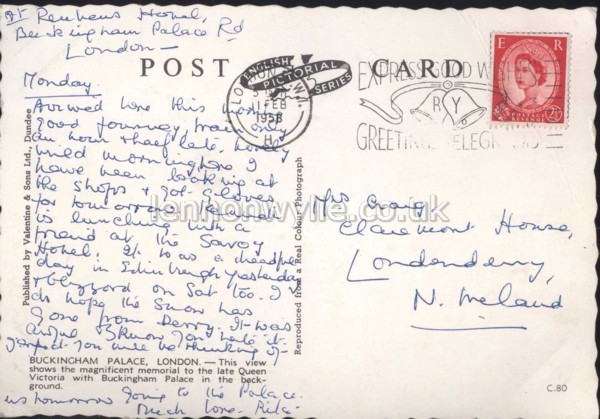 St Reubens Hotel,
Buckingham Palace Rd
London –
Monday
POST CARD
ENGLISH PICTORIAL SERIES
LONDON S.W.1
11 FEB
1958
EXPRESS GOOD WISHES
GREETINGS TELEGRAMS
E R
2½D
Arrived here this morning
good journey train only
an hour & half late, lovely
mild morning here I
have been looking at
the shops & got gloves
for tomorrow.
is lunching with a
friend at the Savoy
Hotel. It was a dreadful
day in Edinburgh yesterday
& blizzard on Sat too. I
do hope the snow has
gone from Derry. It was
awful & I know you hate it.
I expect you will be thinking of
us tomorrow going to the Palace.
Much love Rita
Mrs Craig
Claremont House,
Londonderry,
N. Ireland
Published by Valentine & Sons Ltd., Dundee
Reproduced from a Real Colour Photograph
lennonwylie.co.uk
BUCKINGHAM PALACE, LONDON. — This view
shows the magnificent memorial to the late Queen
Victoria with Buckingham Palace in the back-
ground.
C.80